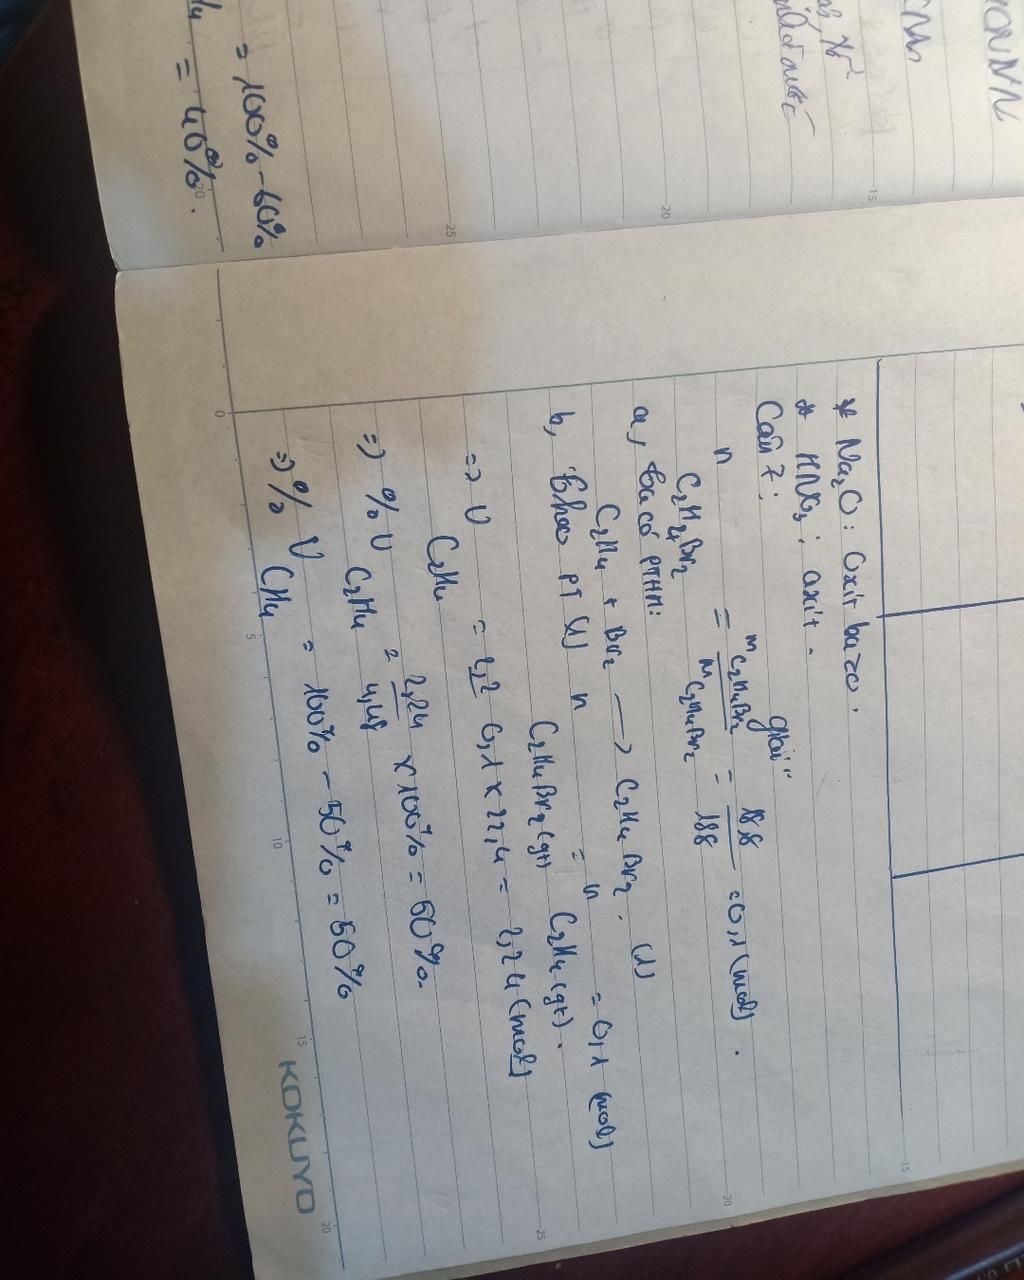 = 100% - 60%
= 40%.
* Na₂O: Oxit bazo.
* HNO₃: axit.
Câu 7: giải"
n C₂H₄Br₂ = m C₂H₄Br₂ / M C₂H₄Br₂ = 18,8 / 188 = 0,1 (mol).
a, Ta có PTHH:
C₂H₄ + Br₂ → C₂H₄Br₂. (1)
b, Theo PT (1) n C₂H₄Br₂ (gt) = n C₂H₄ (gt) = 0,1 (mol)
=> V C₂H₄ = 0,1 x 22,4 = 2,24 (mol)
=> % V C₂H₄ = 2,24 / 4,48 x 100% = 50%.
=> % V CH₄ = 100% - 50% = 50%
KOKUYO